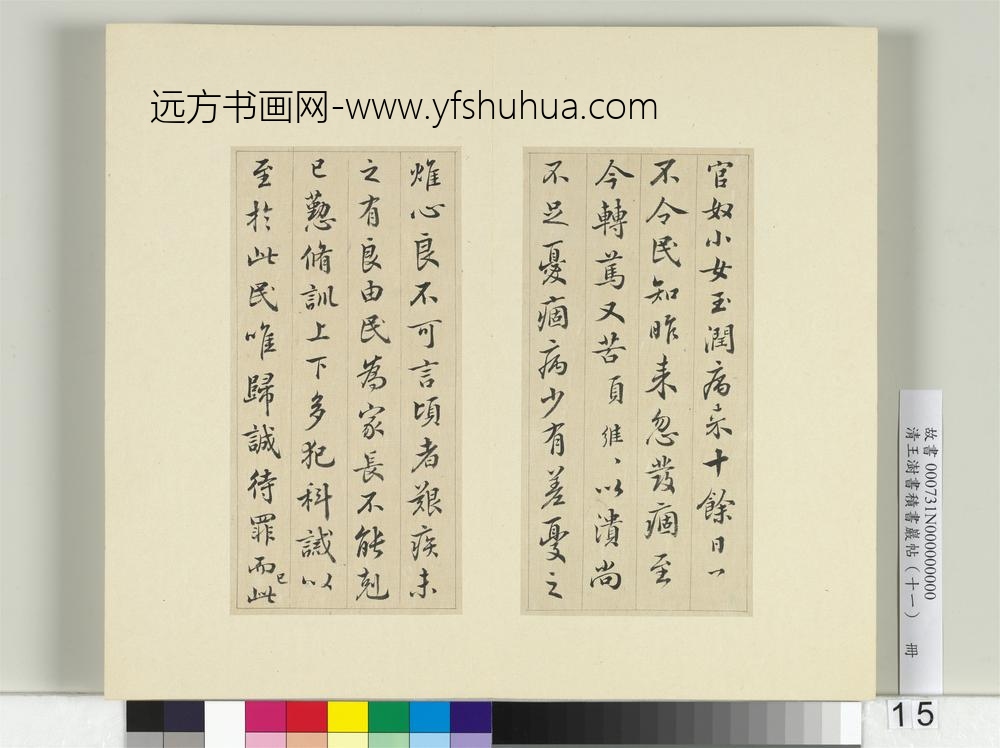 远方书画网-www.yfshuhua.com
官奴小女玉潤病來十餘日了
不令民知昨来忽發痼至
今轉篤又苦頁維〻以潰尚
不足憂痼病少有差憂之
燋心良不可言頃者艱疾未
之有良由民為家長不能剋
已懃脩訓上下多犯科誡以
至於此民唯歸誠待罪而已此
故書 000731N000000000
清王澍書積書巖帖(十一) 冊
15